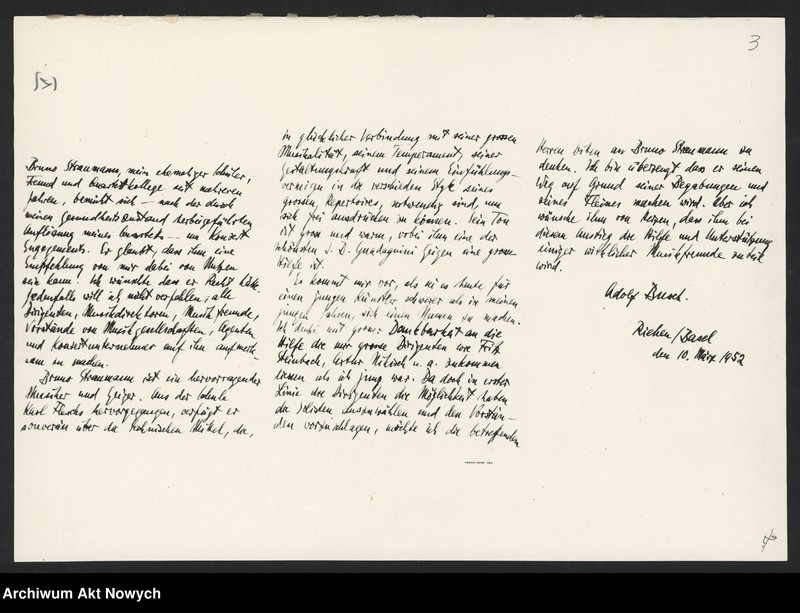 3
[3]
Bruno Straumann, mein ehemaliger Schüler,
Freund und Quartettkollege seit mehreren
Jahren, bemüht sich — nach der durch
meinen Gesundheitszustand herbeigeführten
Auflösung meines Quartets — um Konzert
Engagements. Er glaubt, dass ihm eine
Empfehlung von mir dabei von Nutzen
sein kann. Ich wünschte dass er Recht hätte.
Jedenfalls will ich nicht verfehlen, alle
Dirigenten, Musikdirektoren, Musikfreunde,
Vorstände von Musikgesellschaften, Agenten
und Konzertunternehmer auf ihn aufmerk-
sam zu machen.
Bruno Straumann ist ein hervorragender
Musiker und Geiger. Aus der Schule
Karl Fleschs hervorgegangen, verfügt er
souverän über die technischen Mittel, die,
in glücklicher Verbindung mit seiner grossen
Musikalität, seinem Temperament, seiner
Gestaltungskraft und seinem Einfühlungs-
vermögen in die verschieden Style seines
grossen Repertoires, notwendig sind, um
sich frei ausdrücken zu können. Sein Ton
ist gross und warm, wobei ihm eine der
schönsten J. B. Guadagnini Geigen eine grosse
Hilfe ist.
Es kommt mir vor, als sei es heute für
einen jungen Künstler schwerer als in meinen
jungen Jahren, sich einen Namen zu machen.
Ich denke mit grosser Dankbarkeit an die
Hilfe die mir grosse Dirigenten wie Fritz
Steinbach, Arthur Nikisch u. a. zukommen
liessen als ich jung war. Da doch in erster
Linie die Dirigenten die Möglichkeit haben
die Solisten auszuwählen und den Vorstän-
den vorzuschlagen, möchte ich die betreffenden
Herren bitten an Bruno Straumann zu
denken. Ich bin überzeugt dass er seinen
Weg auf Grund seiner Begabungen und
seines Fleisses machen wird. Aber ich
wünsche ihm von Herzen, dass ihm bei
diesem Anstieg die Hilfe und Unterstützung
einiger wirklicher Musikfreunde zuteil
wird.
Adolf Busch.
Riehen/Basel
den 10. März 1952
Archiwum Akt Nowych